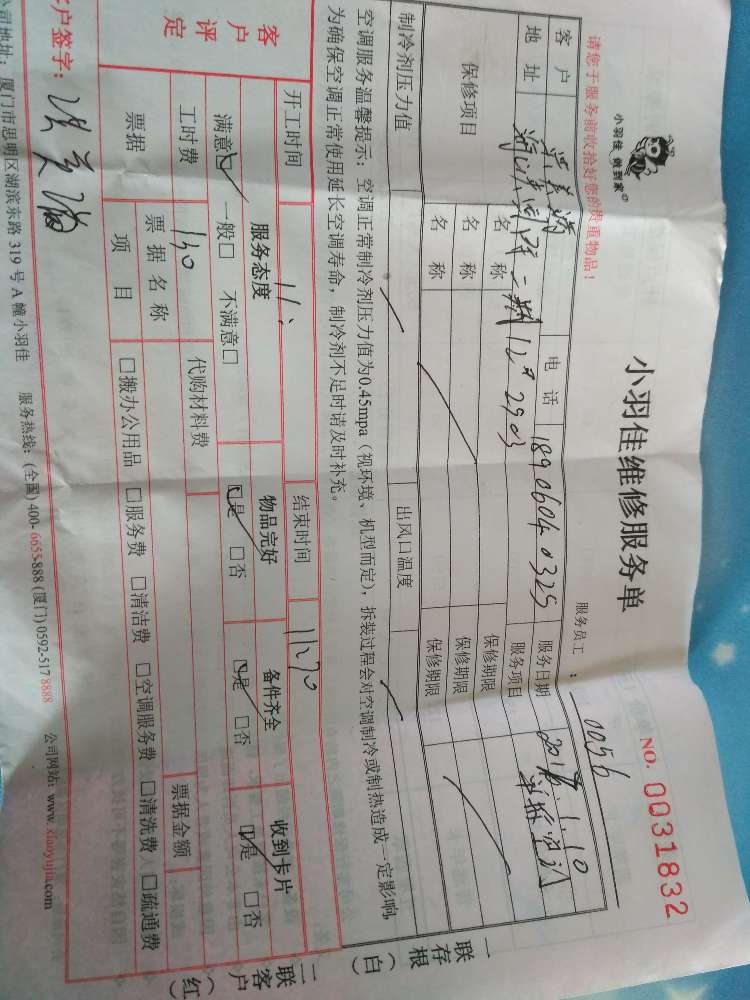 小羽佳 做到家
小羽佳维修服务单
NO. 0031832
请您于服务前收拾好您的贵重物品！
服务员工：0056
客户 电话 18906040325 服务日期 1.10
地址 二期12# 2903 服务项目
保修项目 名称 保修期限
名称 保修期限
名称 保修期限
制冷剂压力值 出风口温度
空调服务温馨提示：空调正常制冷剂压力值为0.45mpa（视环境、机型而定），拆装过程会对空调制冷或制热造成一定影响，
为确保空调正常使用延长空调寿命，制冷剂不足时请及时补充。
开工时间 11: 结束时间
客户评定 服务态度 物品完好 备件齐全 收到卡片
满意☑ 一般□ 不满意□ ☑是 □否 ☑是 □否 ☑是 □否
工时费 130 代购材料费
票据 票据名称 票据金额
项目 □搬办公用品 □服务费 □清洁费 □空调服务费 □清洗费 □疏通费
户签字：
公司地址：厦门市思明区湖滨东路319号A幢小羽佳 服务热线：(全国) 400-6655-888 (厦门) 0592-5178888 公司网站：www.xiaoyujia.com
一联存根（白）
二联客户（红）